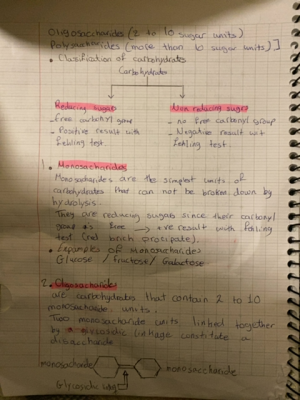 Oligosaccharides (2 to 10 sugar units)
Polysaccharides (more than 10 sugar units)]
• Classification of carbohydrates
Carbohydrates
Reducing sugar
Non reducing sugar
- free carbonyl group
- no free carbonyl group
- Positive result with
- Negative result with
fehling test
fehling test.
1. Monosaccharides
Monosaccharides are the simplest units of
carbohydrates that can not be broken down by
hydrolysis.
They are reducing sugars since their carbonyl
group is free → +ve result with fehling
test (red brick precipate).
• Examples of monosaccharides
Glucose / fructose / Galactose
2. Oligosaccharide
are carbohydrates that contain 2 to 10
monosaccharide units.
Two monosaccharide units linked together
by linkage constitute a
disaccharide
monosaccharide
monosaccharide
Glycosidic link